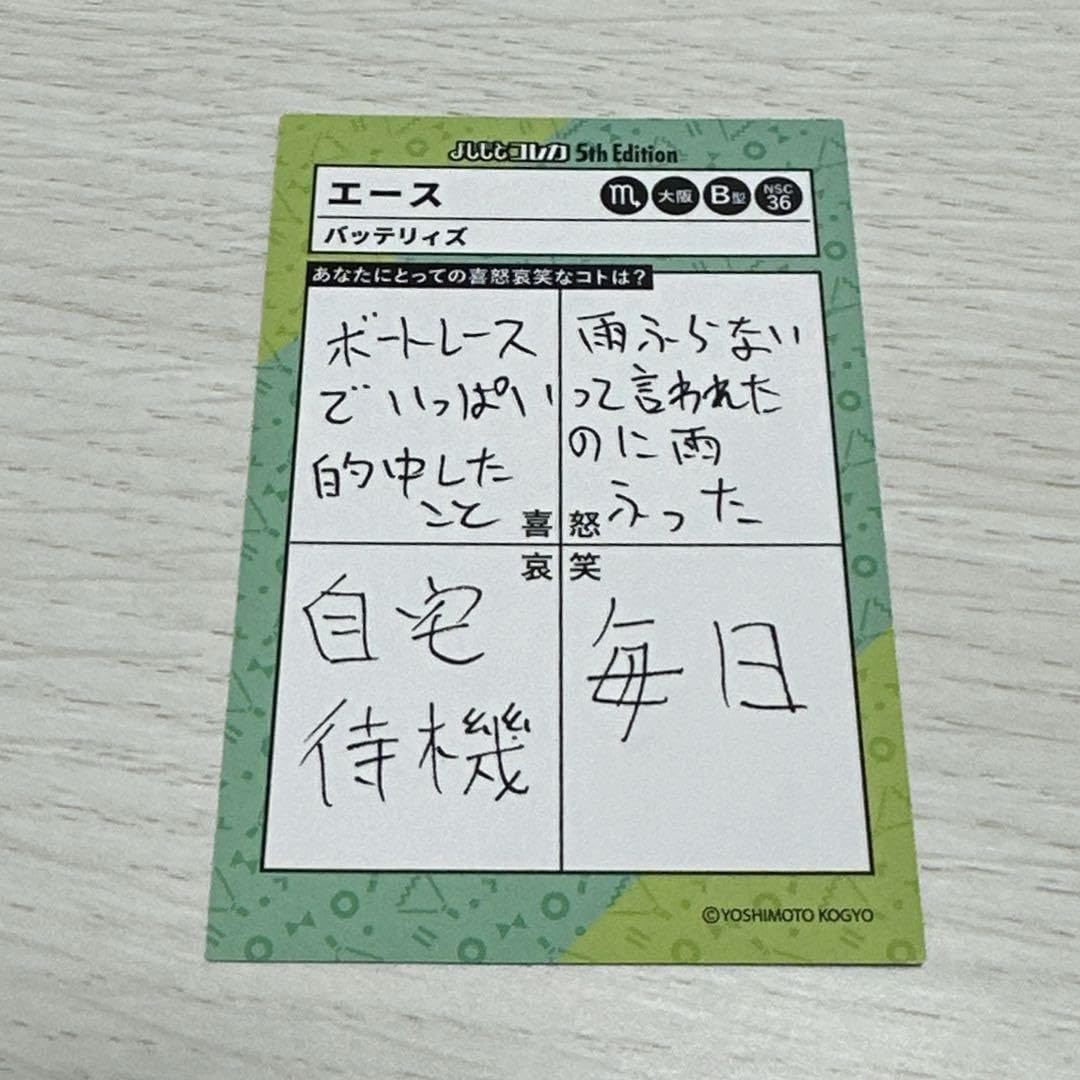 よしもとコレカ 5th Edition
エース ♏ 大阪 B型 NSC 36
バッテリィズ
あなたにとっての喜怒哀笑なコトは？
ボートレース
でいっぱい
的中した
こと
喜
雨ふらない
って言われた
のに雨
ふった
怒
哀
自宅
待機
笑
毎日
©YOSHIMOTO KOGYO